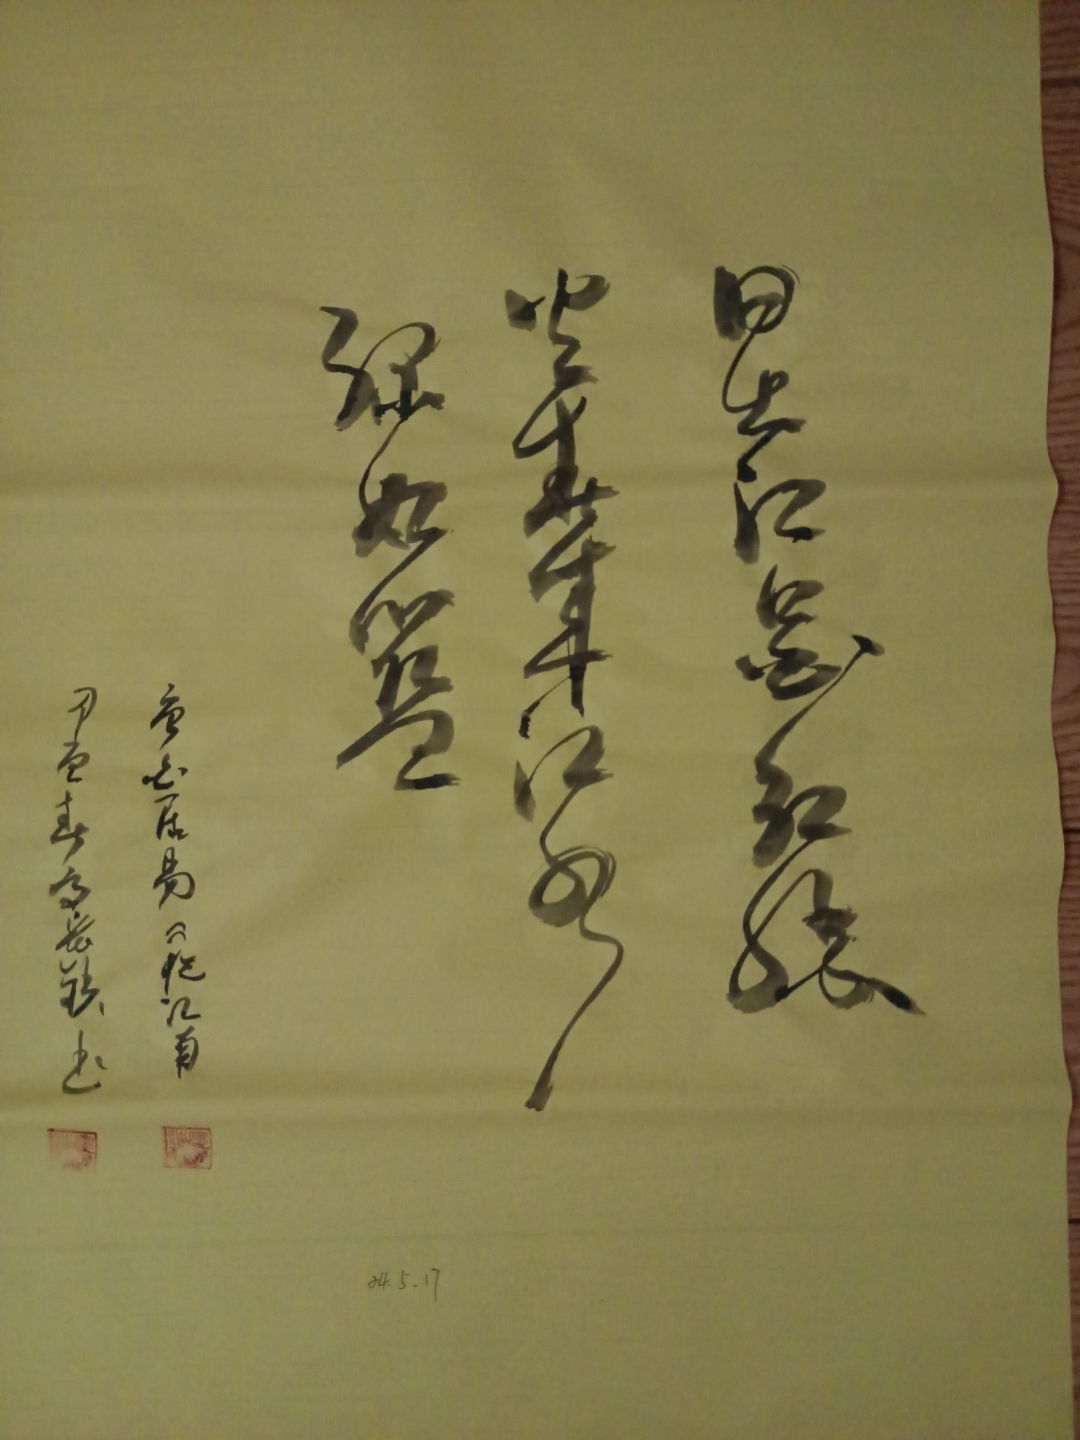 日出江花红胜
火春来江水
绿如蓝
唐白居易 忆江南
春 书
24.5.17